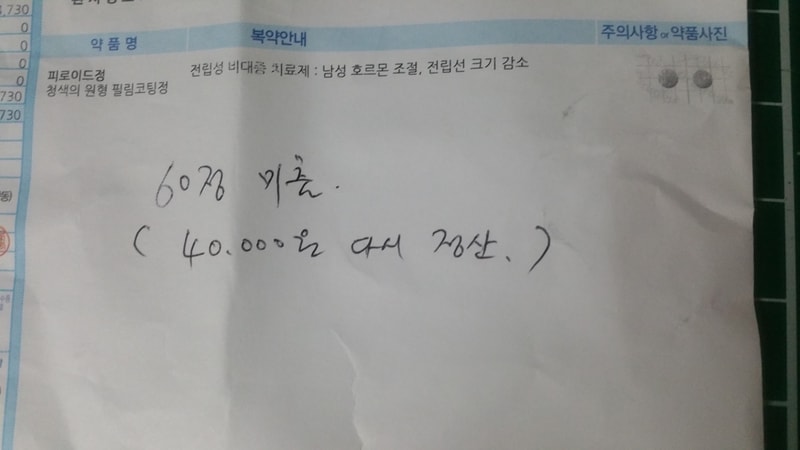 3,730
0
0
0
0
730
730
약 품 명 복약안내 주의사항 or 약품사진
피로이드정 전립성 비대증 치료제 : 남성 호르몬 조절, 전립선 크기 감소
청색의 원형 필림코팅정
60정 미출.
( 40.000원 다시 정산. )